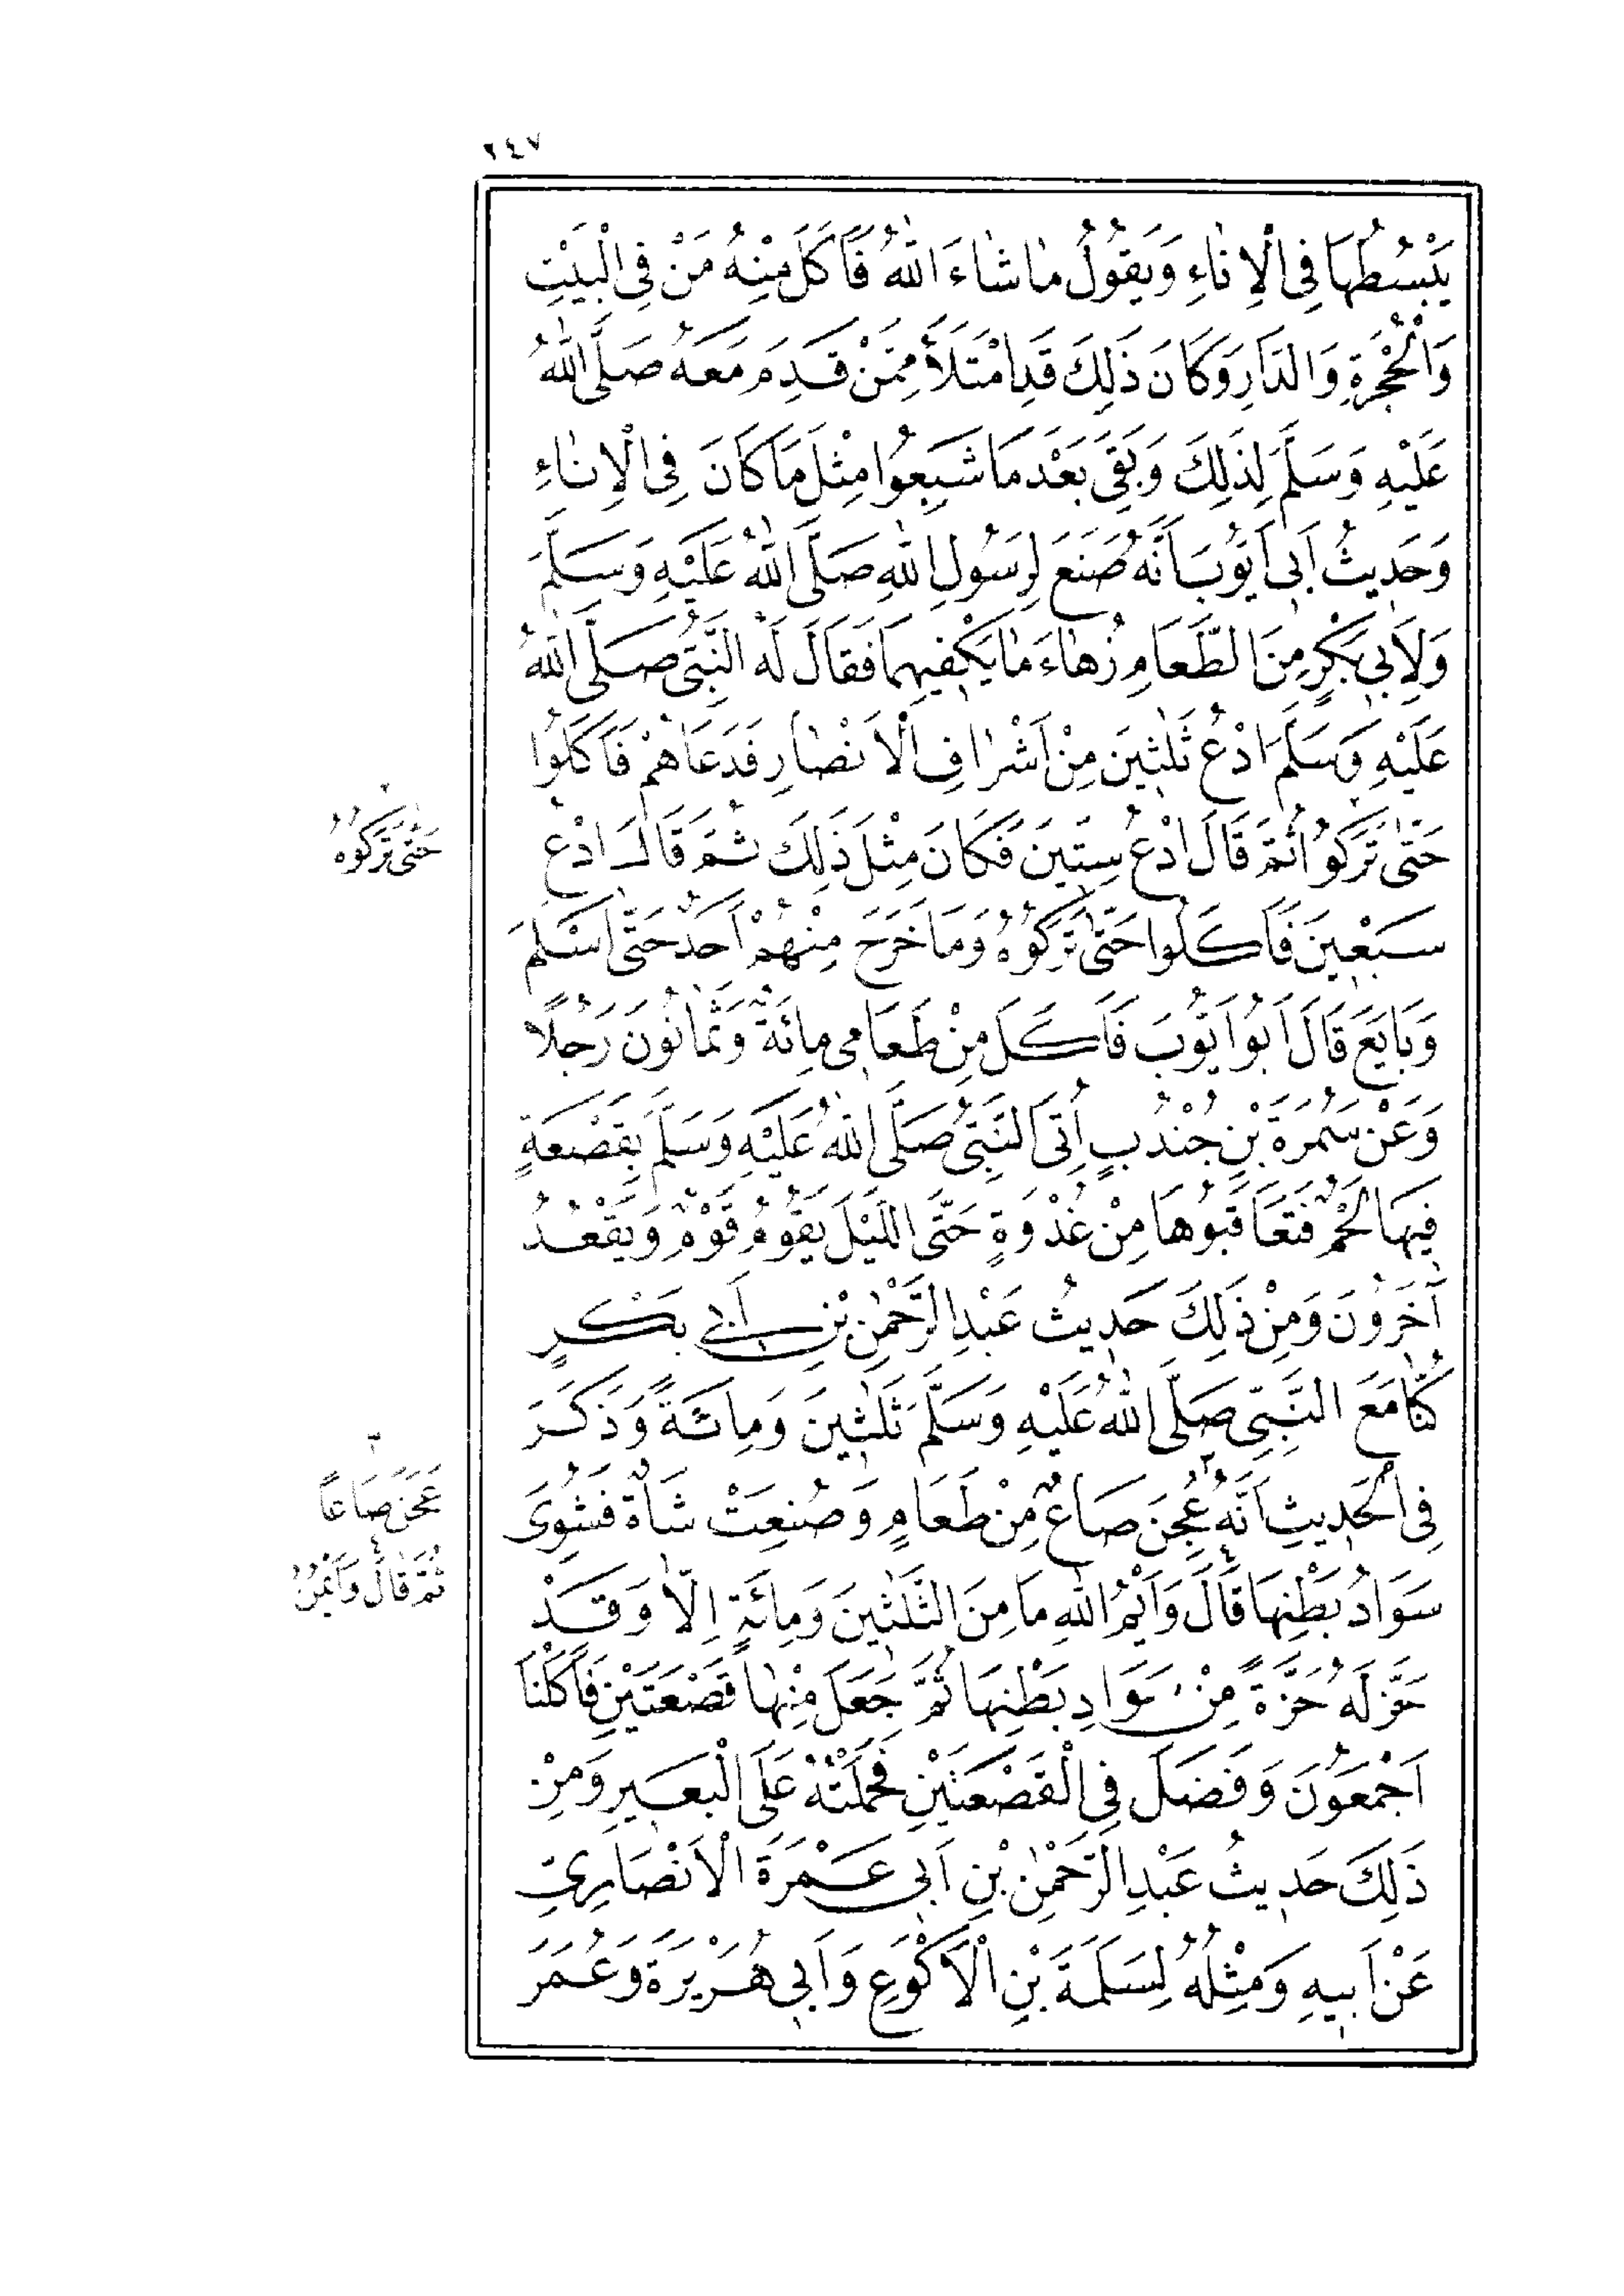 ٢٤٧
يَبْسُطُهَا فِى الْإِنَاءِ وَيَقُولُ مَا شَاءَ اللهُ فَأَكَلَ مِنْهُ مَنْ فِى الْبَيْتِ
وَالْحُجْرَةِ وَالدَّارِ وَكَانَ ذَلِكَ قَدِ امْتَلَأَ مِمَّنْ قَدِمَ مَعَهُ صَلَّى اللهُ
عَلَيْهِ وَسَلَّمَ لِذَلِكَ وَبَقِىَ بَعْدَ مَا شَبِعُوا مِثْلَ مَا كَانَ فِى الْإِنَاءِ
وَحَدِيثُ اَبِى اَيُّوبَ اَنَّهُ صَنَعَ لِرَسُولِ اللهِ صَلَّى اللهُ عَلَيْهِ وَسَلَّمَ
وَلِأَبِى بَكْرٍ مِنَ الطَّعَامِ زُهَاءَ مَا يَكْفِيهِمَا فَقَالَ لَهُ النَّبِىُّ صَلَّى اللهُ
عَلَيْهِ وَسَلَّمَ ادْعُ ثَلٰثِينَ مِنْ اَشْرَافِ الْاَنْصَارِ فَدَعَاهُمْ فَاَكَلُوا
حَتّٰى تَرَكُوا ثُمَّ قَالَ ادْعُ سِتِّينَ فَكَانَ مِثْلَ ذَلِكَ ثُمَّ قَالَ ادْعُ
حَتّٰى تَرَكُوهُ
سَبْعِينَ فَاَكَلُوا حَتّٰى تَرَكُوهُ وَمَا خَرَجَ مِنْهُمْ اَحَدٌ حَتّٰى اَسْلَمَ
وَبَايَعَ قَالَ اَبُو اَيُّوبَ فَاَكَلَ مِنْ طَعَامِى مِائَةٌ وَثَمَانُونَ رَجُلًا
وَعَنْ سَمُرَةَ بْنِ جُنْدُبٍ اُتِىَ النَّبِىُّ صَلَّى اللهُ عَلَيْهِ وَسَلَّمَ بِقَصْعَةٍ
فِيهَا لَحْمٌ فَتَعَاقَبُوهَا مِنْ غُدْوَةٍ حَتَّى اللَّيْلَ يَقُومُ قَوْمٌ وَيَقْعُدُ
آخَرُونَ وَمِنْ ذَلِكَ حَدِيثُ عَبْدِ الرَّحْمٰنِ بْنِ اَبِى بَكْرٍ
كُنَّا مَعَ النَّبِىِّ صَلَّى اللهُ عَلَيْهِ وَسَلَّمَ ثَلٰثِينَ وَمِائَةً وَذَكَرَ
فِى الْحَدِيثِ اَنَّهُ عُجِنَ صَاعٌ مِنْ طَعَامٍ وَصُنِعَتْ شَاةٌ فَشُوِىَ
عَجَنَ صَاعًا
سَوَادُ بَطْنِهَا قَالَ وَاَيْمُ اللهِ مَا مِنَ الثَّلٰثِينَ وَمِائَةٍ اِلَّا وَقَدْ
ثُمَّ قَالَ وَاَيْمُنُ
حَزَّ لَهُ حَزَّةً مِنْ سَوَادِ بَطْنِهَا ثُمَّ جَعَلَ مِنْهَا قَصْعَتَيْنِ فَاَكَلْنَا
اَجْمَعُونَ وَفَضَلَ فِى الْقَصْعَتَيْنِ فَحَمَلْتُهُ عَلَى الْبَعِيرِ وَمِنْ
ذَلِكَ حَدِيثُ عَبْدِ الرَّحْمٰنِ بْنِ اَبِى عَمْرَةَ الْاَنْصَارِىِّ
عَنْ اَبِيهِ وَمِثْلُهُ لِسَلَمَةَ بْنِ الْاَكْوَعِ وَاَبِى هُرَيْرَةَ وَعُمَرَ